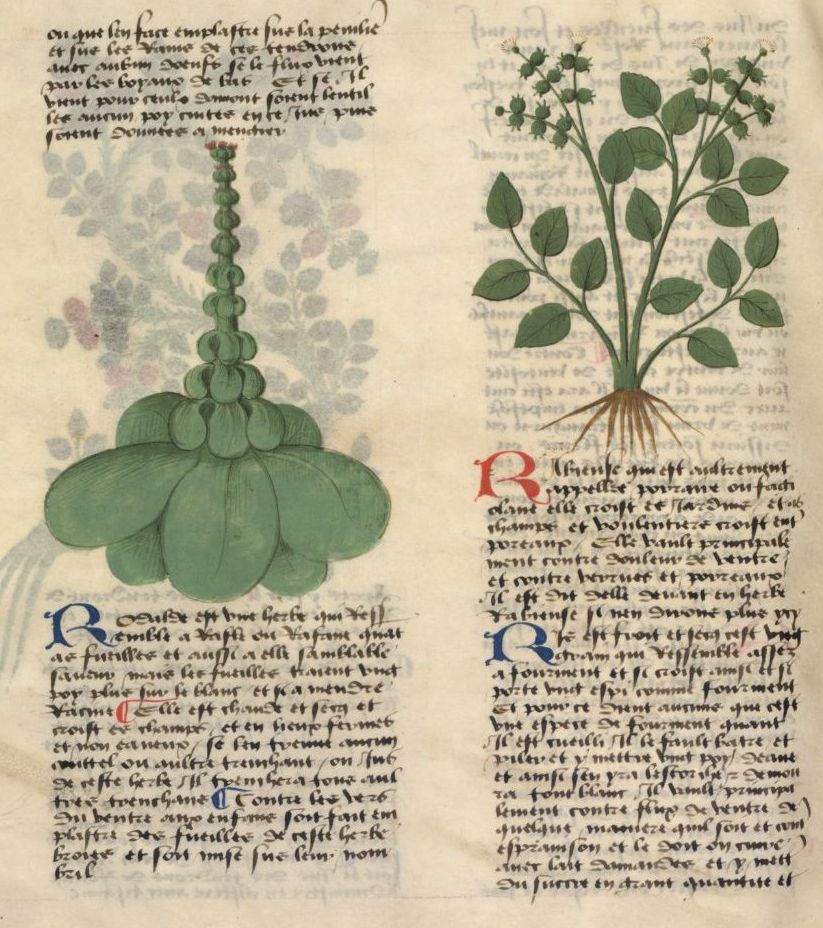 ou que len face emplastre sus la penilie
et sus les Rains de ces tendrons
avec aubun doeuf se le flux vient
par les boyaux de bas Et se Il
vient pour ceulx damont soient lentil
les aucun poy cuites en ce Jus puis
soient donnees a mengier
Rodulde est une herbe qui Ress
emble a Raffle ou Rafane quat
as fueilles et aussi a elle samblable
saveur mais les fueilles traient ung
poy plus sur le blanc et si a mendre
Racine Elle est chaude et seche et
croist es champs et en lieux fermes
et non eaveux se len trenne aucun
couttel ou aultre trenchant ou Jus
de ceste herbe Il trenchera tous aul
tres trenchans Contre les vers
du ventre aux enfans soit fait em
plastre des fueilles de ceste herbe
broiee et soit mise sus leur nom
bril
Rabiense qui est aultrement
appellee
elle croist es Jardins et es
champs et voulentiers croist ent
poreaux Elle vault principale
ment contre douleur de ventre
et contre verrues et porreaux
Il est dit delle devant en herbe
Rabiense si nen dirons plus cy
Ris est froit et sec cest ung
grain qui Ressemble assez
a fourment et si croist ainsi et si
porte ung espi comme fourment
Et pour ce dient aucuns que cest
une espece de fourment quant
Il est cueilli Il le fault batre et
piler et y mettre ung poy deaue
et ainsi sen yra lescorche et demou
ra tout blanc Il vault principa
lement contre flux de ventre de
quelque maniere quil soit et cont
espramson et le doit on cuire
avec lait damandes et y mett
du succre en grant quantite et